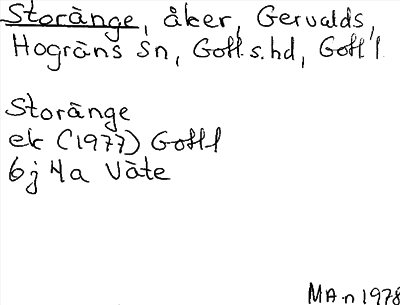 Storänge, åker, Gervalds,
Hogräns sn, Gotl. s. hd, Gotl
Storänge
ek (1977) Gotl
6j 4a Väte
MA-n 1978